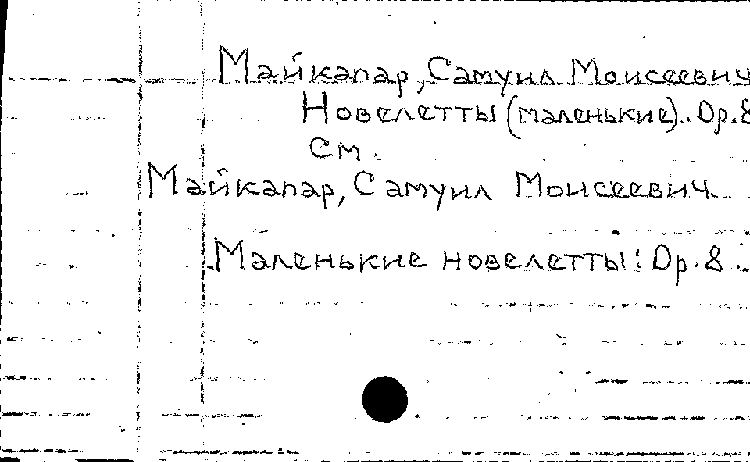 Майкапар, Самуил Моисеевич
Новелетты (маленькие). Op. 8
См.
Майкапар, Самуил Моисеевич
Маленькие новелетты: Op. 8.